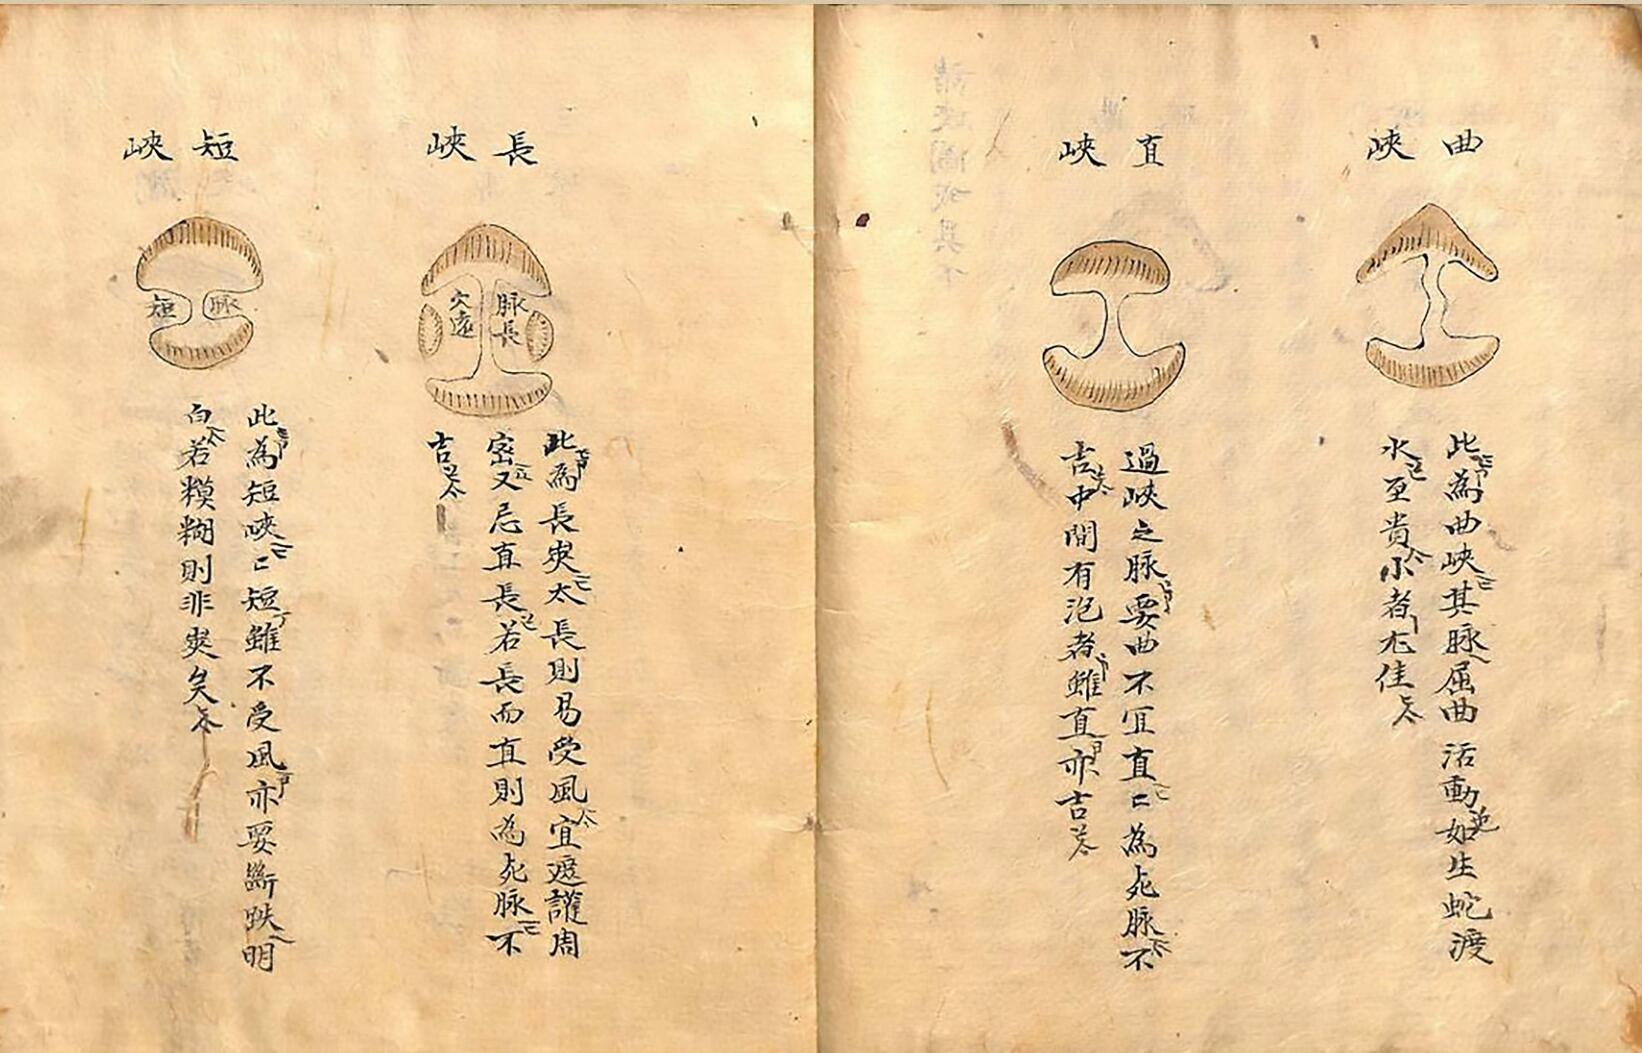 曲峽
此為曲峽其脉屈曲活動如生蛇渡
水至貴小者尤佳
直峽
過峽之脉要曲不宜直〻為死脉不
吉中間有泡者雖直亦吉
長峽
脉長
穴遠
此為長峽太長則易受風宜遮護周
密又忌直長若長而直則為死脉不
吉
短峽
脉
短
此為短峽〻短雖不受風亦要斷跌明
白若糢糊則非峽矣